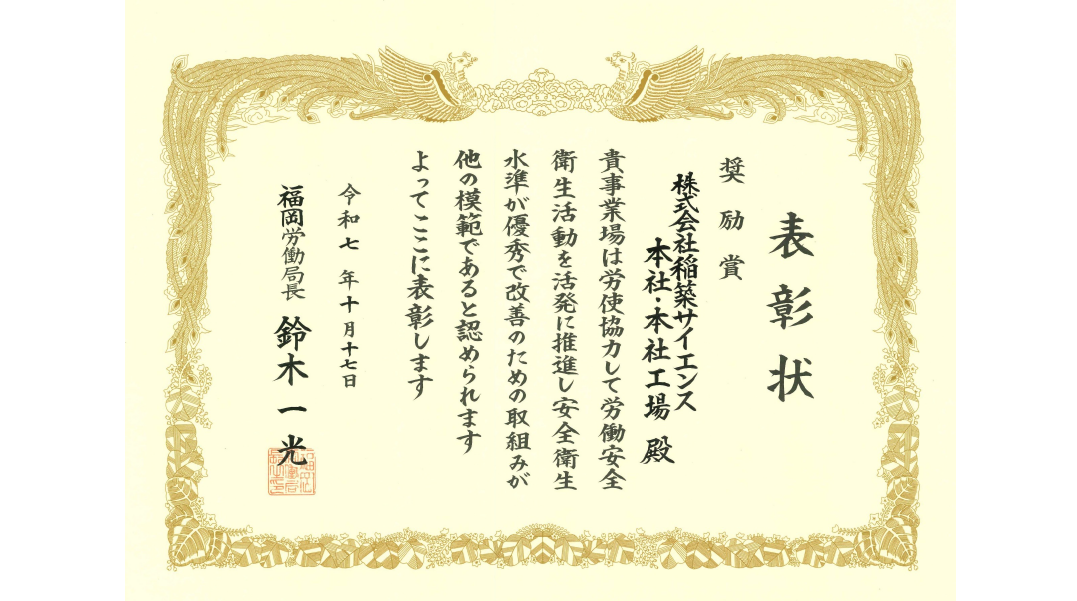 表彰状
奨励賞
株式会社稲築サイエンス
本社・本社工場 殿
貴事業場は労使協力して労働安全
衛生活動を活発に推進し安全衛生
水準が優秀で改善のための取組みが
他の模範であると認められます
よってここに表彰します
令和七年十月十七日
福岡労働局長 鈴木一光